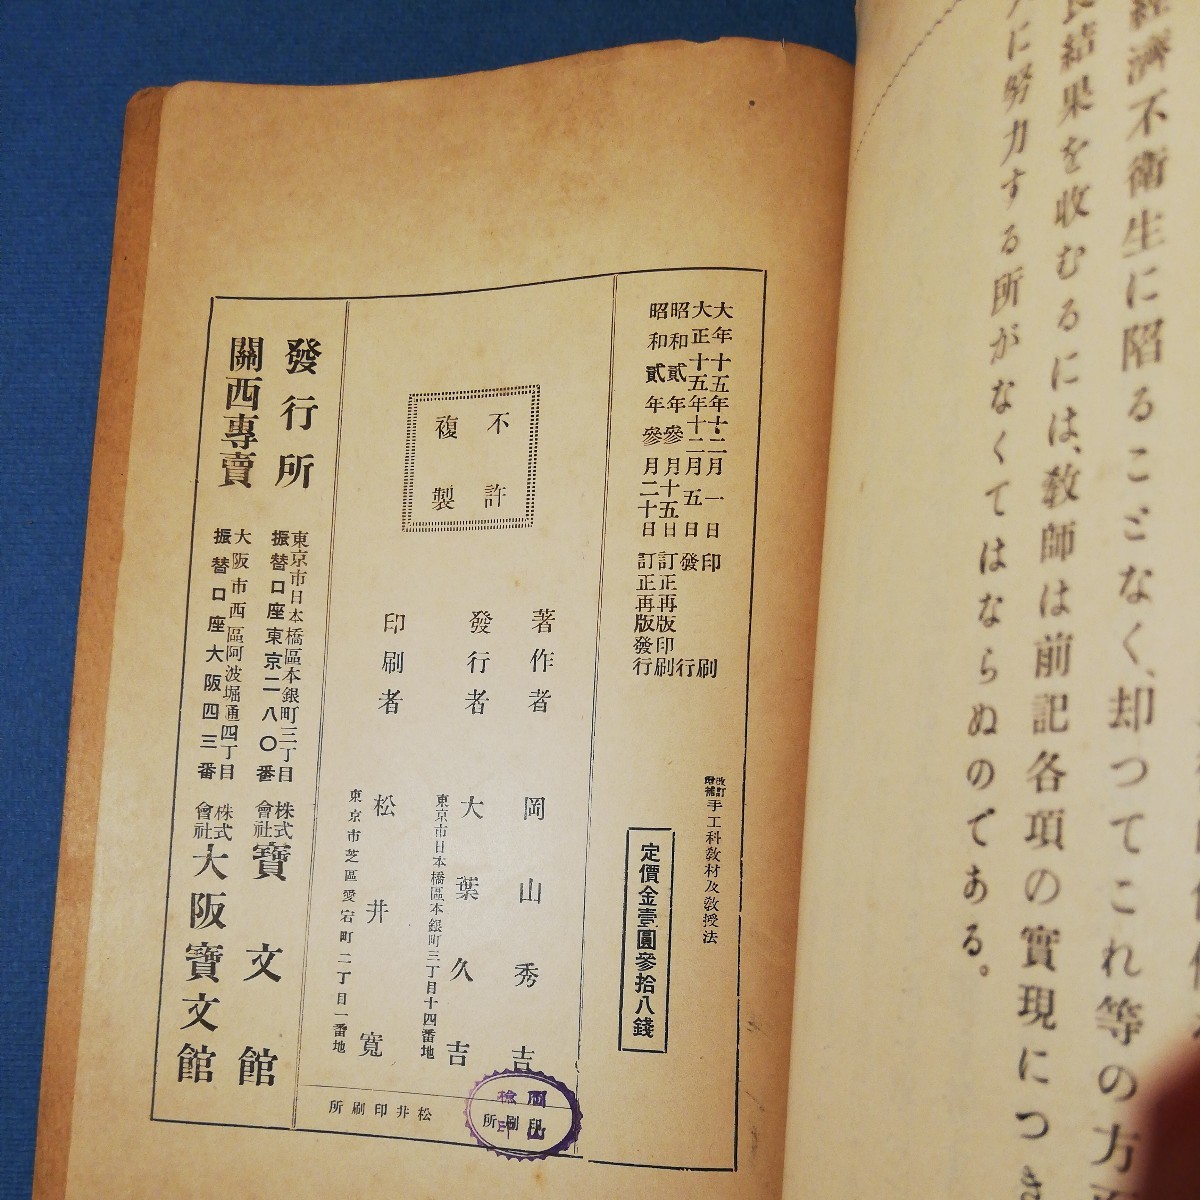 經濟不衞生に陷ることなく、却つてこれ等の方
結果を收むるには、敎師は前記各項の實現につき
に努力する所がなくてはならぬのである。
大年十五年十二月一日印刷
大正十五年十二月五日發行
昭和貳年參月十五日訂正再版印刷
昭和貳年參月二十日訂正再版發行
改訂增補 手工科敎材及敎授法
定價金壹圓參拾八錢
不許複製
著作者 岡山秀吉
發行者 大葉久吉
東京市日本橋區本銀町三丁目十四番地
印刷者 松井寬
東京市芝區愛宕町二丁目一番地
印刷所 松井印刷所
岡山檢印
發行所 東京市日本橋區本銀町三丁目 株式會社 寶文館
振替口座東京二八〇番
關西專賣 大阪市西區阿波堀通四丁目 株式會社 大阪寶文館
振替口座大阪四三番